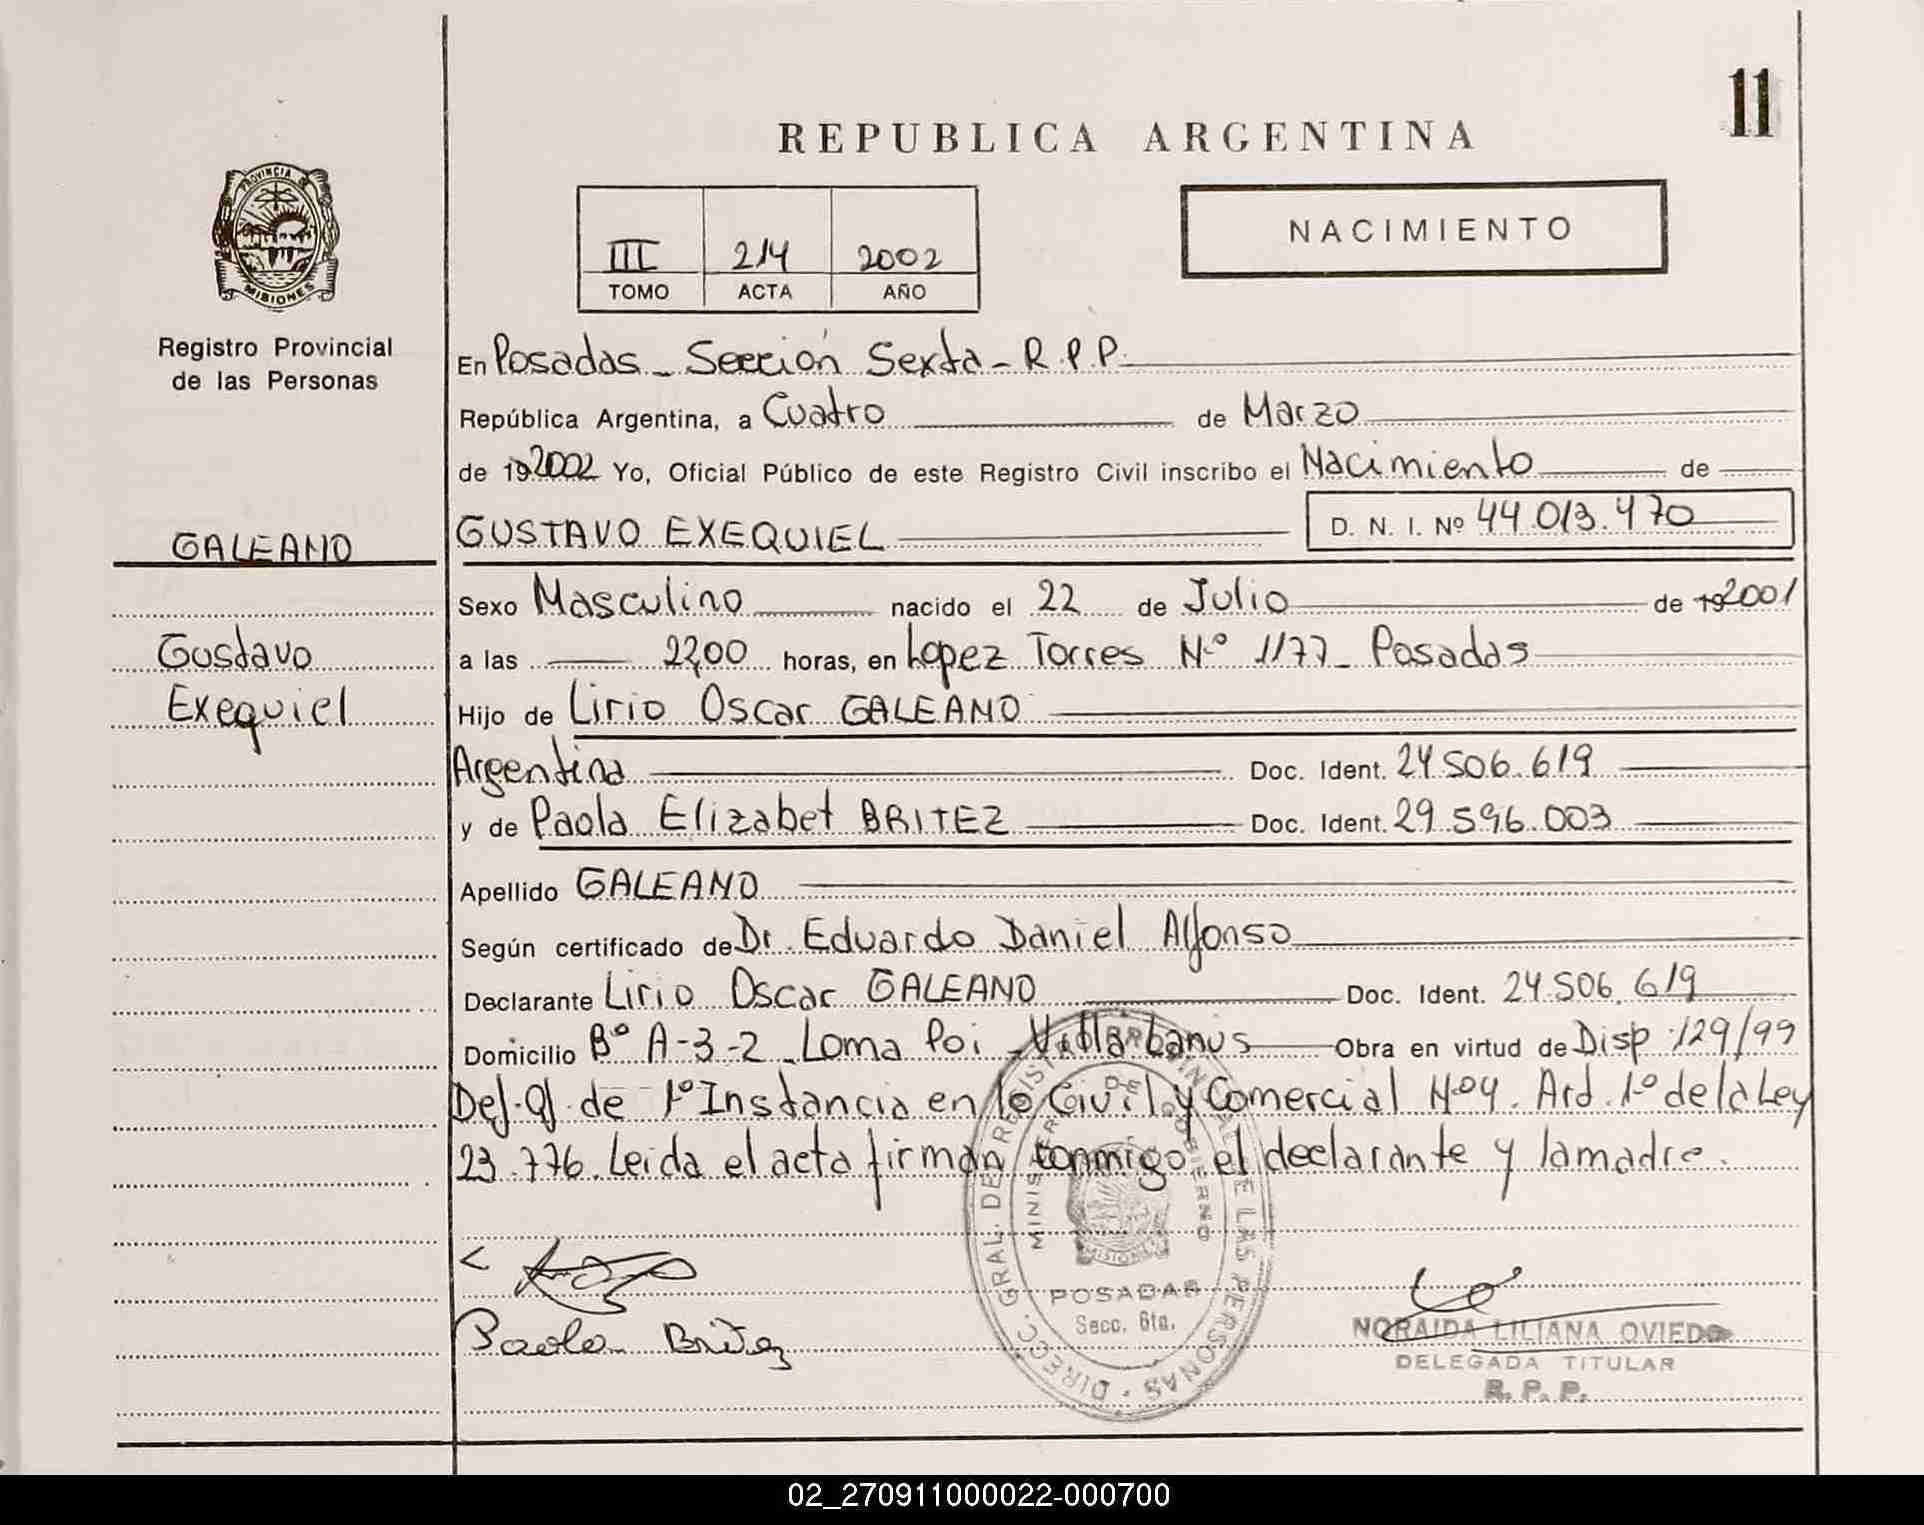 11
REPUBLICA ARGENTINA
PROVINCIA DE
MISIONES
III 214 2002
TOMO ACTA AÑO
NACIMIENTO
Registro Provincial
de las Personas
En Posadas - Sección Sexta - R.P.P.
República Argentina, a Cuatro de Marzo
de 19 2002 Yo, Oficial Público de este Registro Civil inscribo el Nacimiento de
GALEANO
GUSTAVO EXEQUIEL D. N. I. Nº 44.013.470
Sexo Masculino nacido el 22 de Julio de 19 2001
Gustavo
a las 22,00 horas, en Lopez Torres Nº 1177 - Posadas
Exequiel
Hijo de Lirio Oscar GALEANO
Argentina Doc. Ident. 24.506.619
y de Paola Elizabet BRITEZ Doc. Ident. 29.596.003
Apellido GALEANO
Según certificado de Dr. Eduardo Daniel Alfonso
Declarante Lirio Oscar GALEANO Doc. Ident. 24.506.619
Domicilio Bº A-3-2 - Loma Poi - Villa Lanus Obra en virtud de Disp. 129/99
Def. Of. de 1º Instancia en lo Civil y Comercial Nº 4. Art. 1º de la Ley
23.776. Leida el acta firman conmigo el declarante y la madre.
DIREC. GRAL. DE REGISTRO PROVINCIAL DE LAS PERSONAS
MINISTERIO DE GOBIERNO
MISIONES
POSADAS
Secc. 6ta.
Paola Britez
NORAIDA LILIANA OVIEDO
DELEGADA TITULAR
R. P. P.
02_270911000022-000700